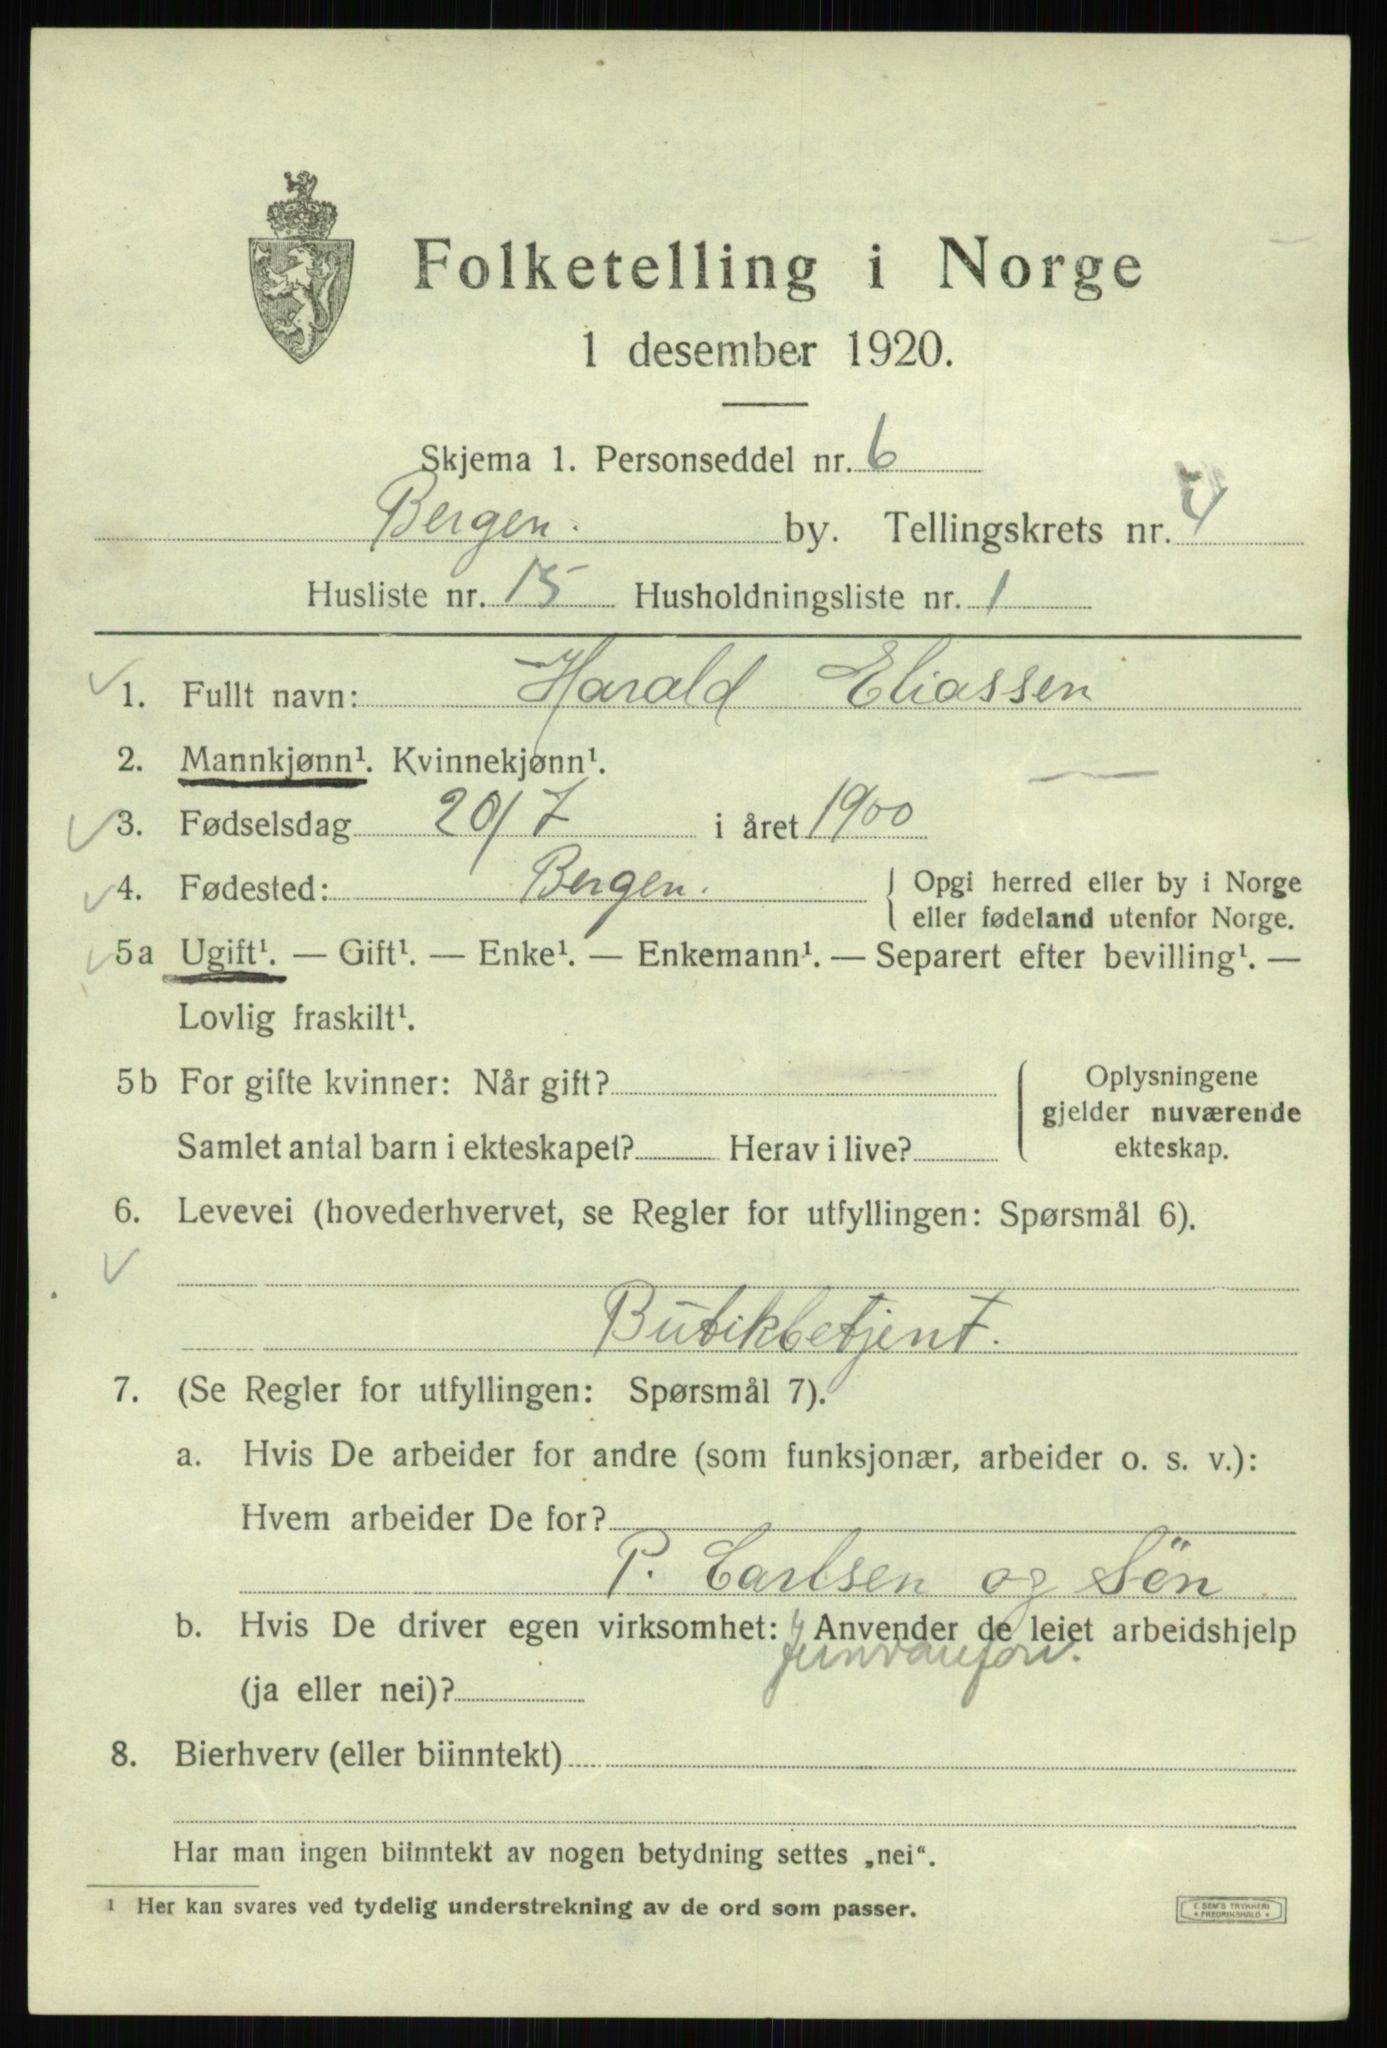 Folketelling i Norge
1 desember 1920.
Skjema 1. Personseddel nr. 6
Bergen. by. Tellingskrets nr. 4
Husliste nr. 15 Husholdningsliste nr. 1
1. Fullt navn: Harald Eliassen
2. Mannkjønn¹. Kvinnekjønn¹.
3. Fødselsdag 20/7 i året 1900
4. Fødested: Bergen. Opgi herred eller by i Norge
eller fødeland utenfor Norge.
5a Ugift¹. — Gift¹. — Enke¹. — Enkemann¹. — Separert efter bevilling¹. —
Lovlig fraskilt¹.
5b For gifte kvinner: Når gift?
Samlet antal barn i ekteskapet? Herav i live?
Oplysningene
gjelder nuværende
ekteskap.
6. Levevei (hovederhvervet, se Regler for utfyllingen: Spørsmål 6).
Butikbetjent.
7. (Se Regler for utfyllingen: Spørsmål 7).
a. Hvis De arbeider for andre (som funksjonær, arbeider o. s. v.):
Hvem arbeider De for?
P. Carlsen og Søn
b. Hvis De driver egen virksomhet: Anvender de leiet arbeidshjelp
(ja eller nei)?
8. Bierhverv (eller biinntekt)
Har man ingen biinntekt av nogen betydning settes „nei“.
¹ Her kan svares ved tydelig understrekning av de ord som passer.
E. SEM'S TRYKKERI
• FREDRIKSHALD •